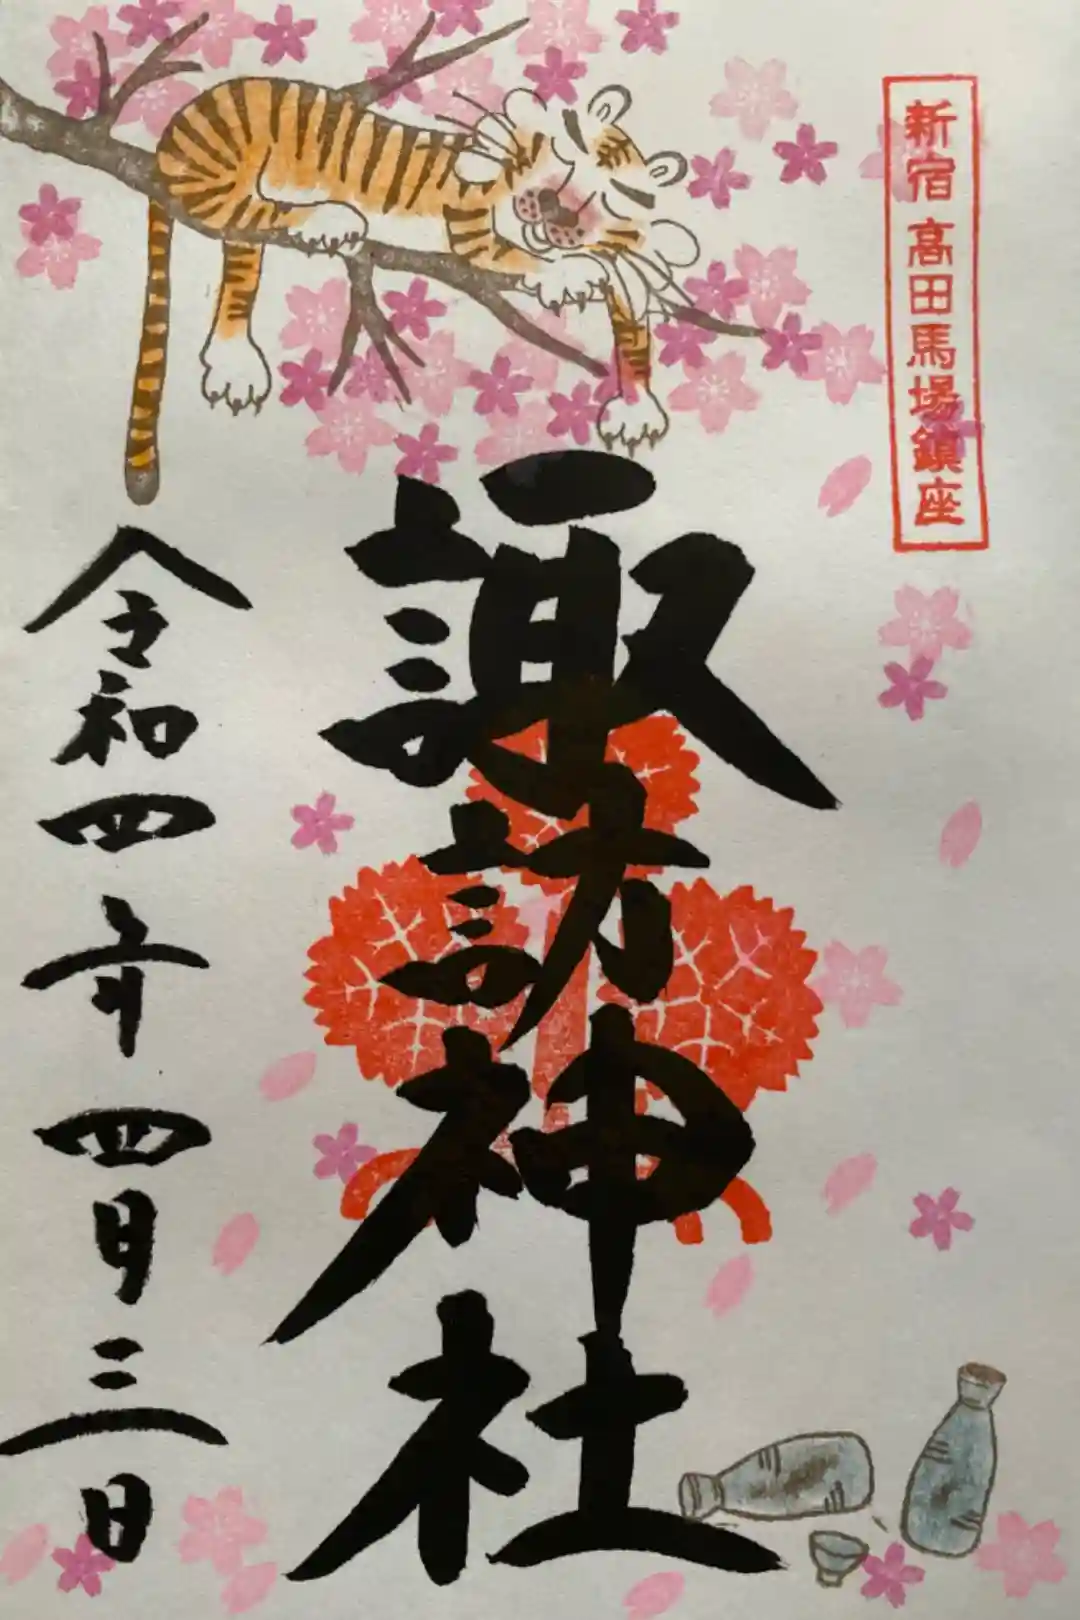 新宿 高田馬場鎮座
諏訪神社
令和四年四月三日